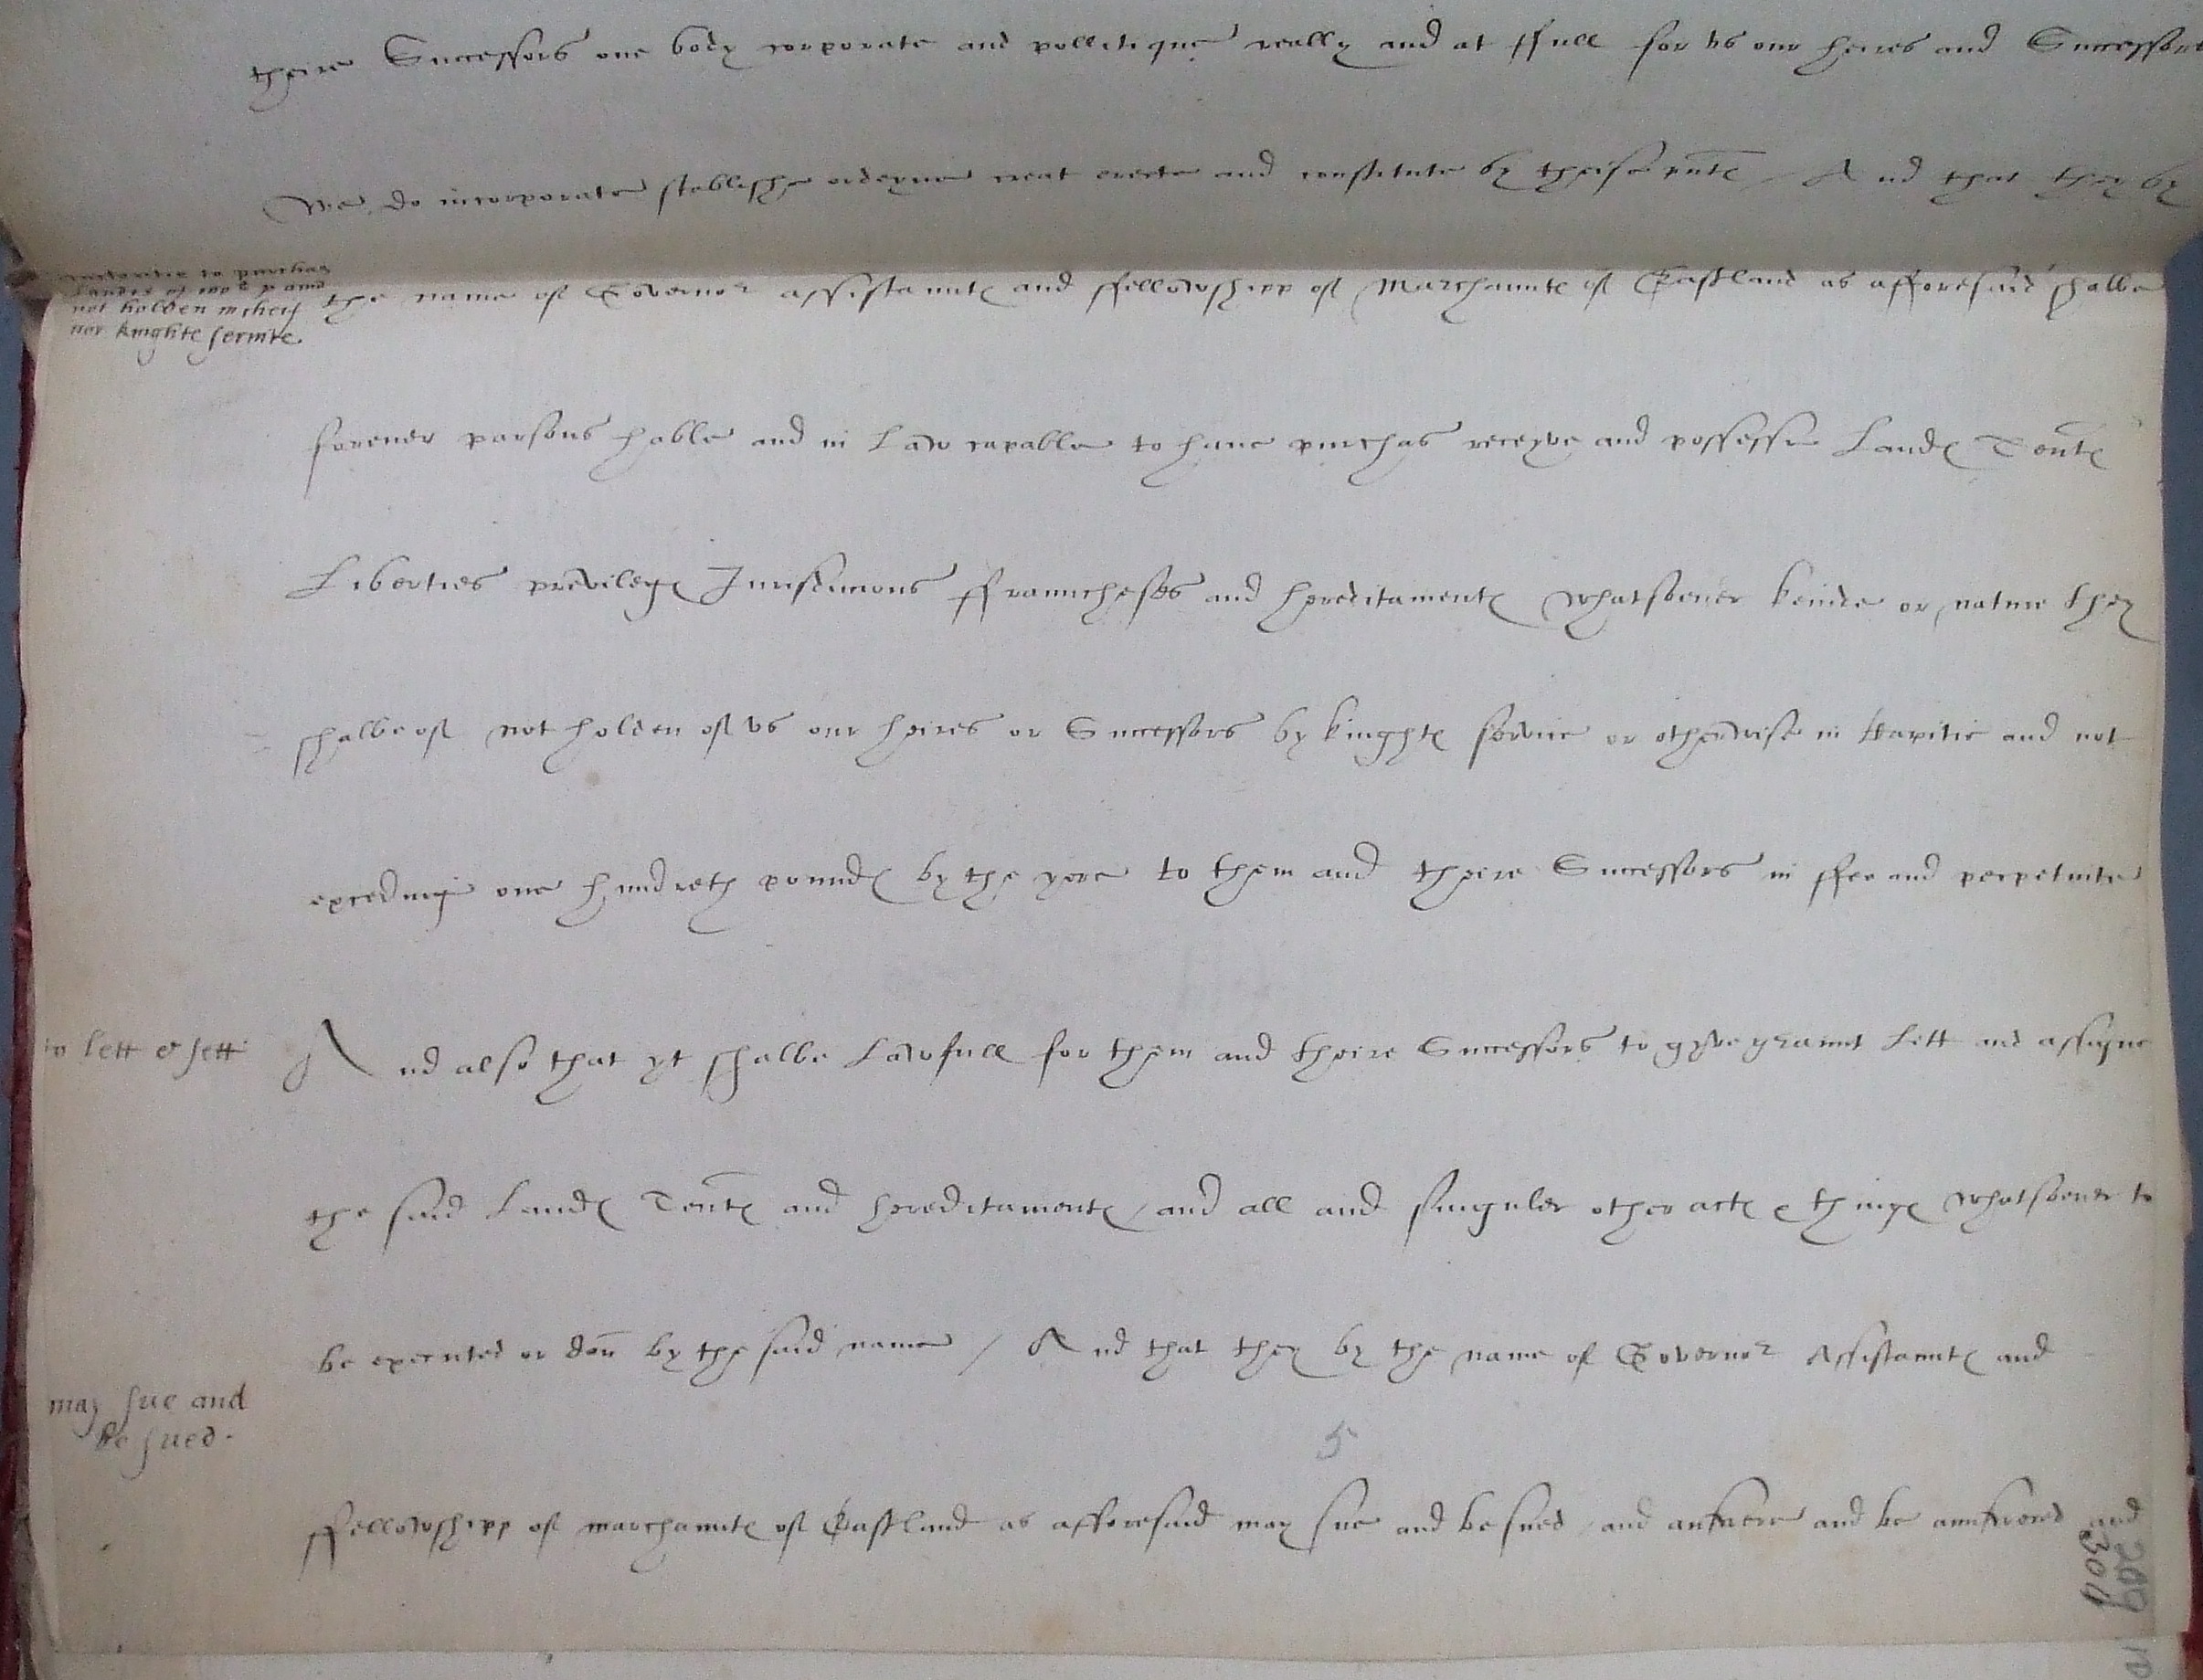 theire Successors one body corporate and pollitique really and at ffull for vs our heires and Successors
We do incorporate stablishe ordeyne creat erecte and constitute by theise pnte / And that they by
to purchas
Landes of
not holden in cheif
nor knighte service
the name of Governor assistaunte and ffellowshipp of Marchaunte of Eastland as afforesaid shalbe
forever parsons hable and in Law capable to haue purchas receyve and possesse Landes Tente
Liberties previleges Jurisdiccions ffrauncheses and hereditamente whatsoever keinde or nature they
shalbe of not holden of vs our heires or Successors by kinghte servic or otherwise in Capitie and not
exceding one hundreth poundes by the yere to them and theire Successors in ffee and perpetuite
to lett & sett
And also that yt shalbe Lawfull for them and theire Successors to gyve graunt Lett and assigne
the said Landes Tente and hereditamente / and all and singuler other acte & thinges whatsoever to
be executed or don by the said name / And that they by the name of Governor Assistaunte and
may sue and
be sued.
5
ffellowshipp of marchaunte of Eastland as afforesaid may sue and be sued / and answere and be aunswered and
304